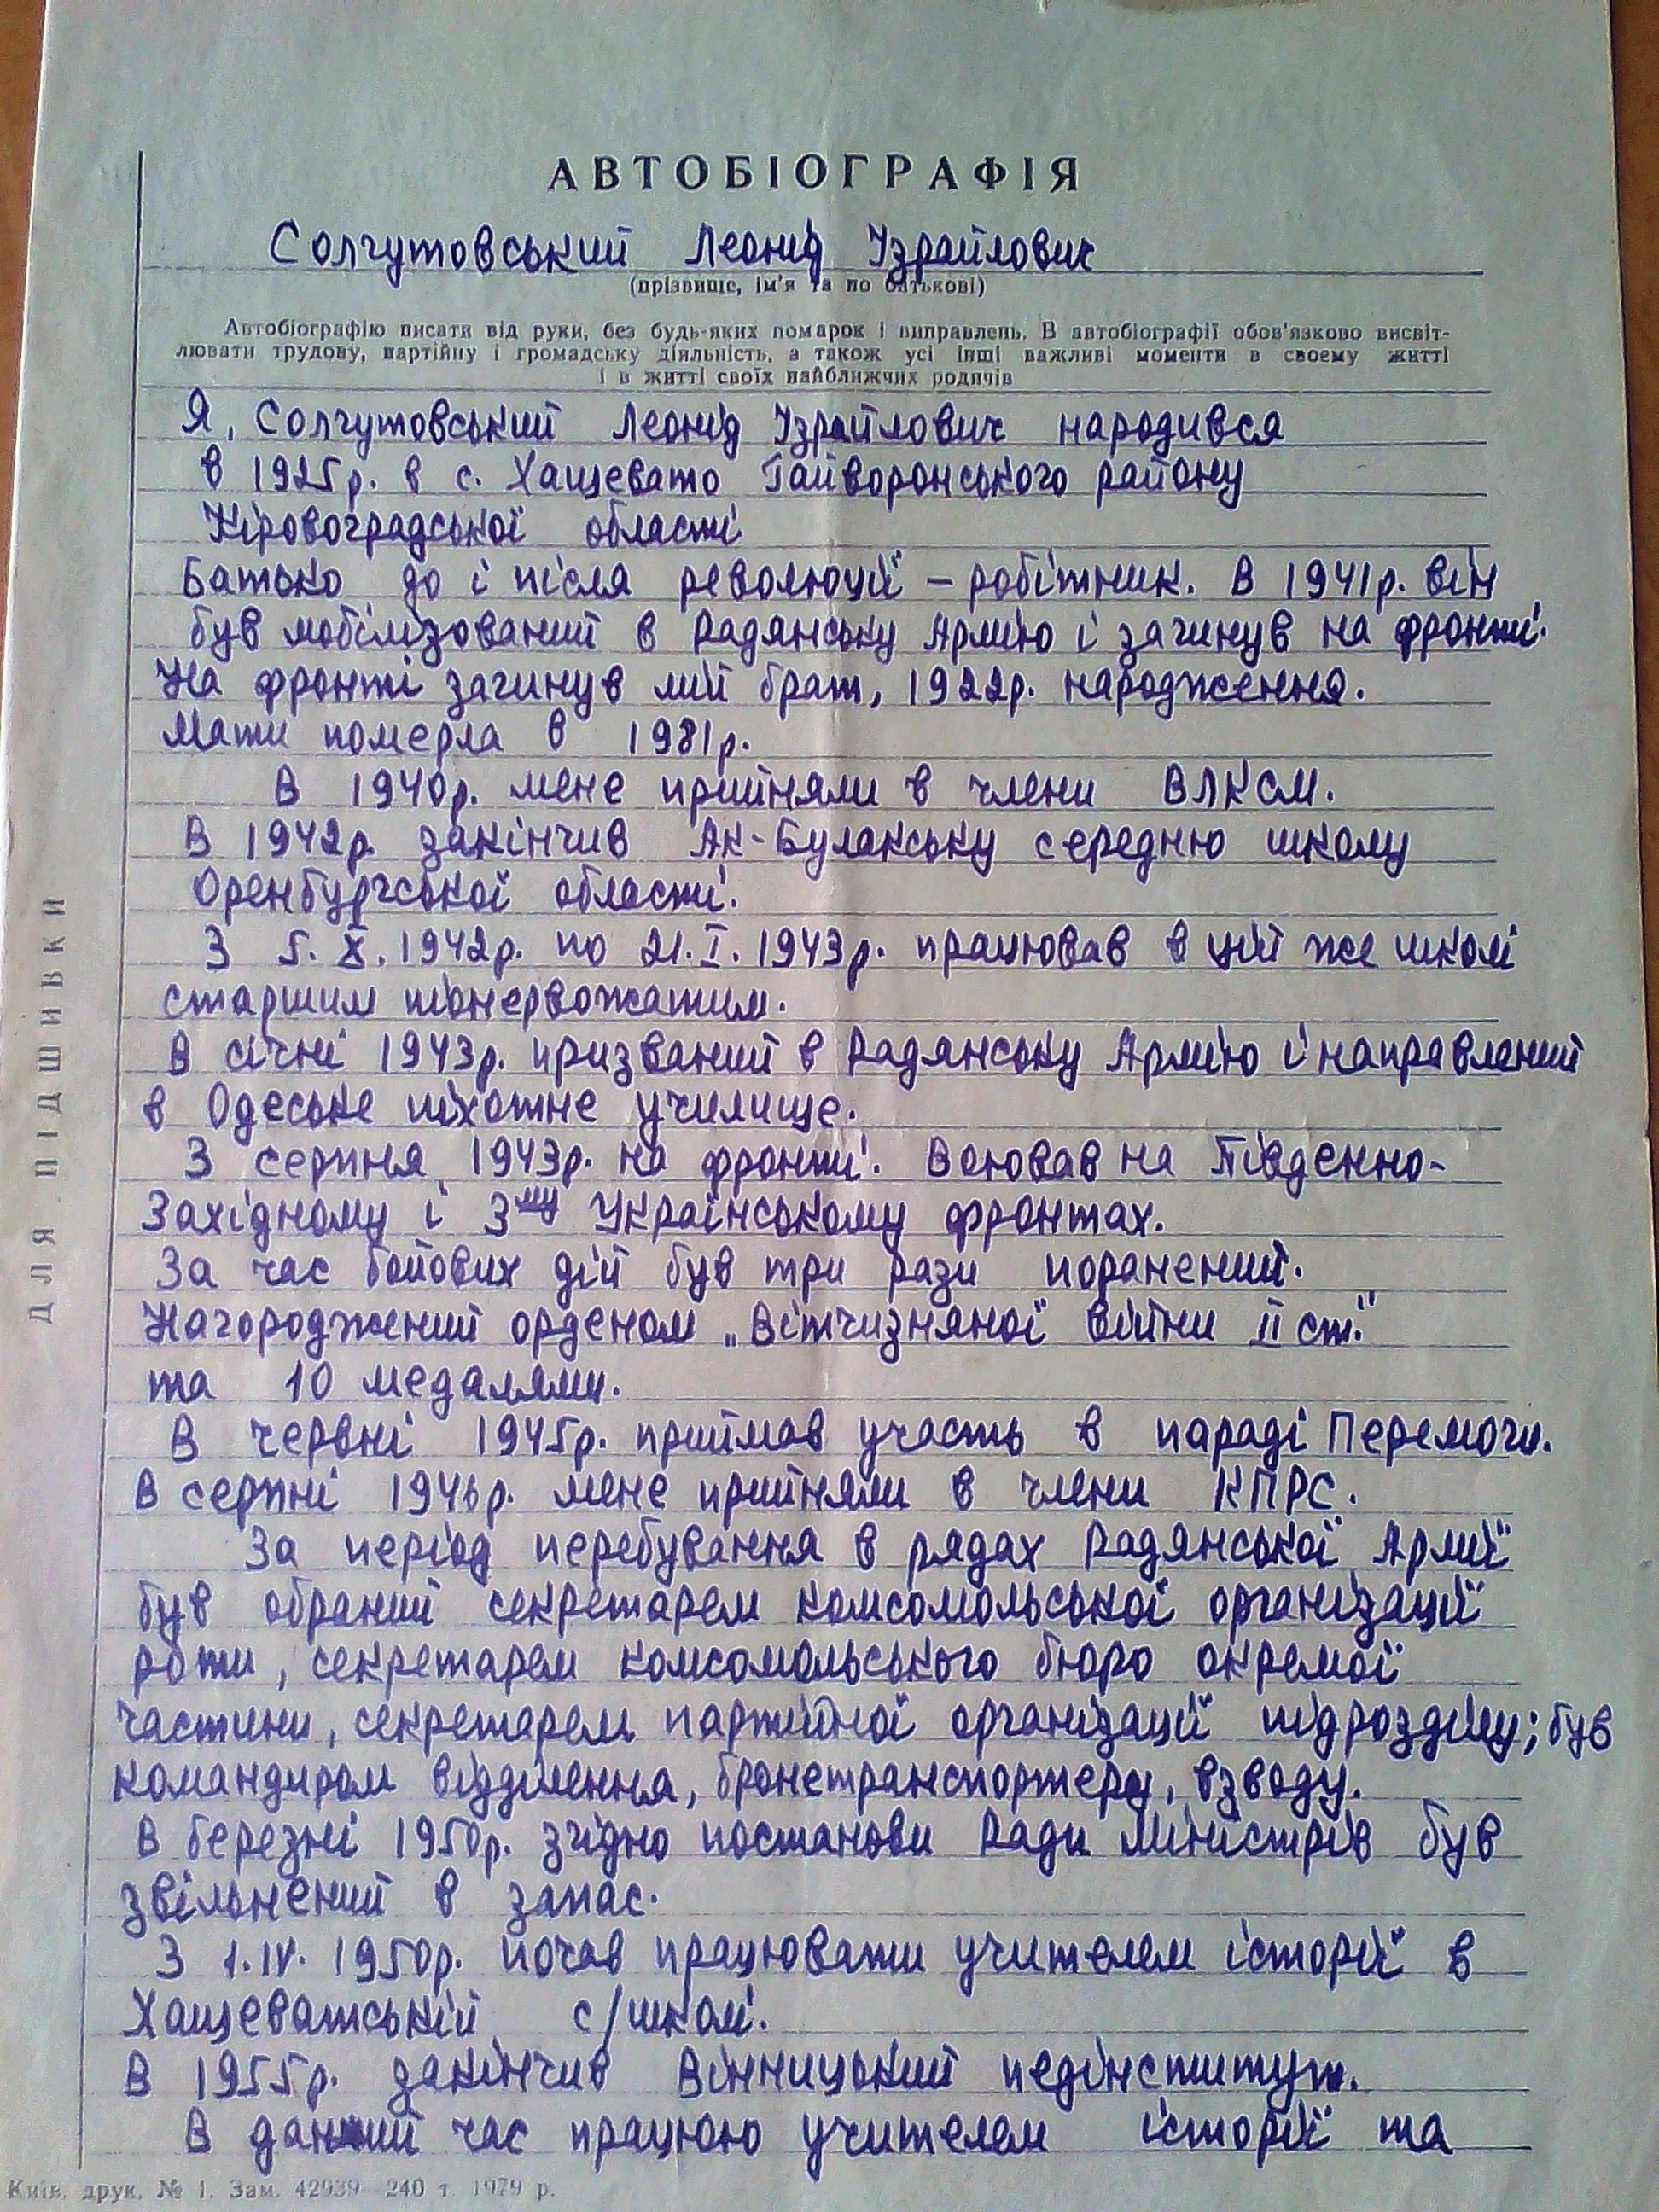 АВТОБІОГРАФІЯ
Солгутовський Леонід Ізраїлович
(прізвище, ім'я та по батькові)
Автобіографію писати від руки, без будь-яких помарок і виправлень. В автобіографії обов'язково висвіт-
лювати трудову, партійну і громадську діяльність, а також усі інші важливі моменти в своєму житті
і в житті своїх найближчих родичів
Я, Солгутовський Леонід Ізраїлович народився
в 1925р. в с. Хащевато Гайворонського району
Кіровоградської області
Батько до і після революції – робітник. В 1941р. він
був мобілізований в Радянську Армію і загинув на фронті.
На фронті загинув мій брат, 1922р. народження.
Мати померла в 1981р.
В 1940р. мене прийняли в члени ВЛКСМ.
В 1942р. закінчив Ак-Булакську середню школу
Оренбургської області.
З 5.X.1942р. по 21.I.1943р. працював в цій же школі
старшим піонервожатим.
В січні 1943р. призваний в Радянську Армію і направлений
в Одеське піхотне училище.
З серпня 1943р. на фронті. Воював на Південно-
Західному і 3му Українському фронтах.
За час бойових дій був три рази поранений.
Нагороджений орденом „Вітчизняної війни II ст."
та 10 медалями.
В червні 1945р. приймав участь в параді Перемоги.
В серпні 1946р. мене прийняли в члени КПРС.
За період перебування в рядах Радянської Армії
був обраний секретарем комсомольської організації
роти, секретарем комсомольського бюро окремої
частини, секретарем партійної організації підрозділу; був
командиром відділення, бронетранспортеру, взводу.
В березні 1950р. згідно постанови Ради Міністрів був
звільнений в запас.
З 1.IV.1950р. почав працювати учителем історії в
Хащеватській с/школі.
В 1955р. закінчив Вінницький педінститут.
В данний час працюю учителем історії та
ДЛЯ ПІДШИВКИ
Київ. друк. № 1. Зам. 42939—240 т. 1979 р.